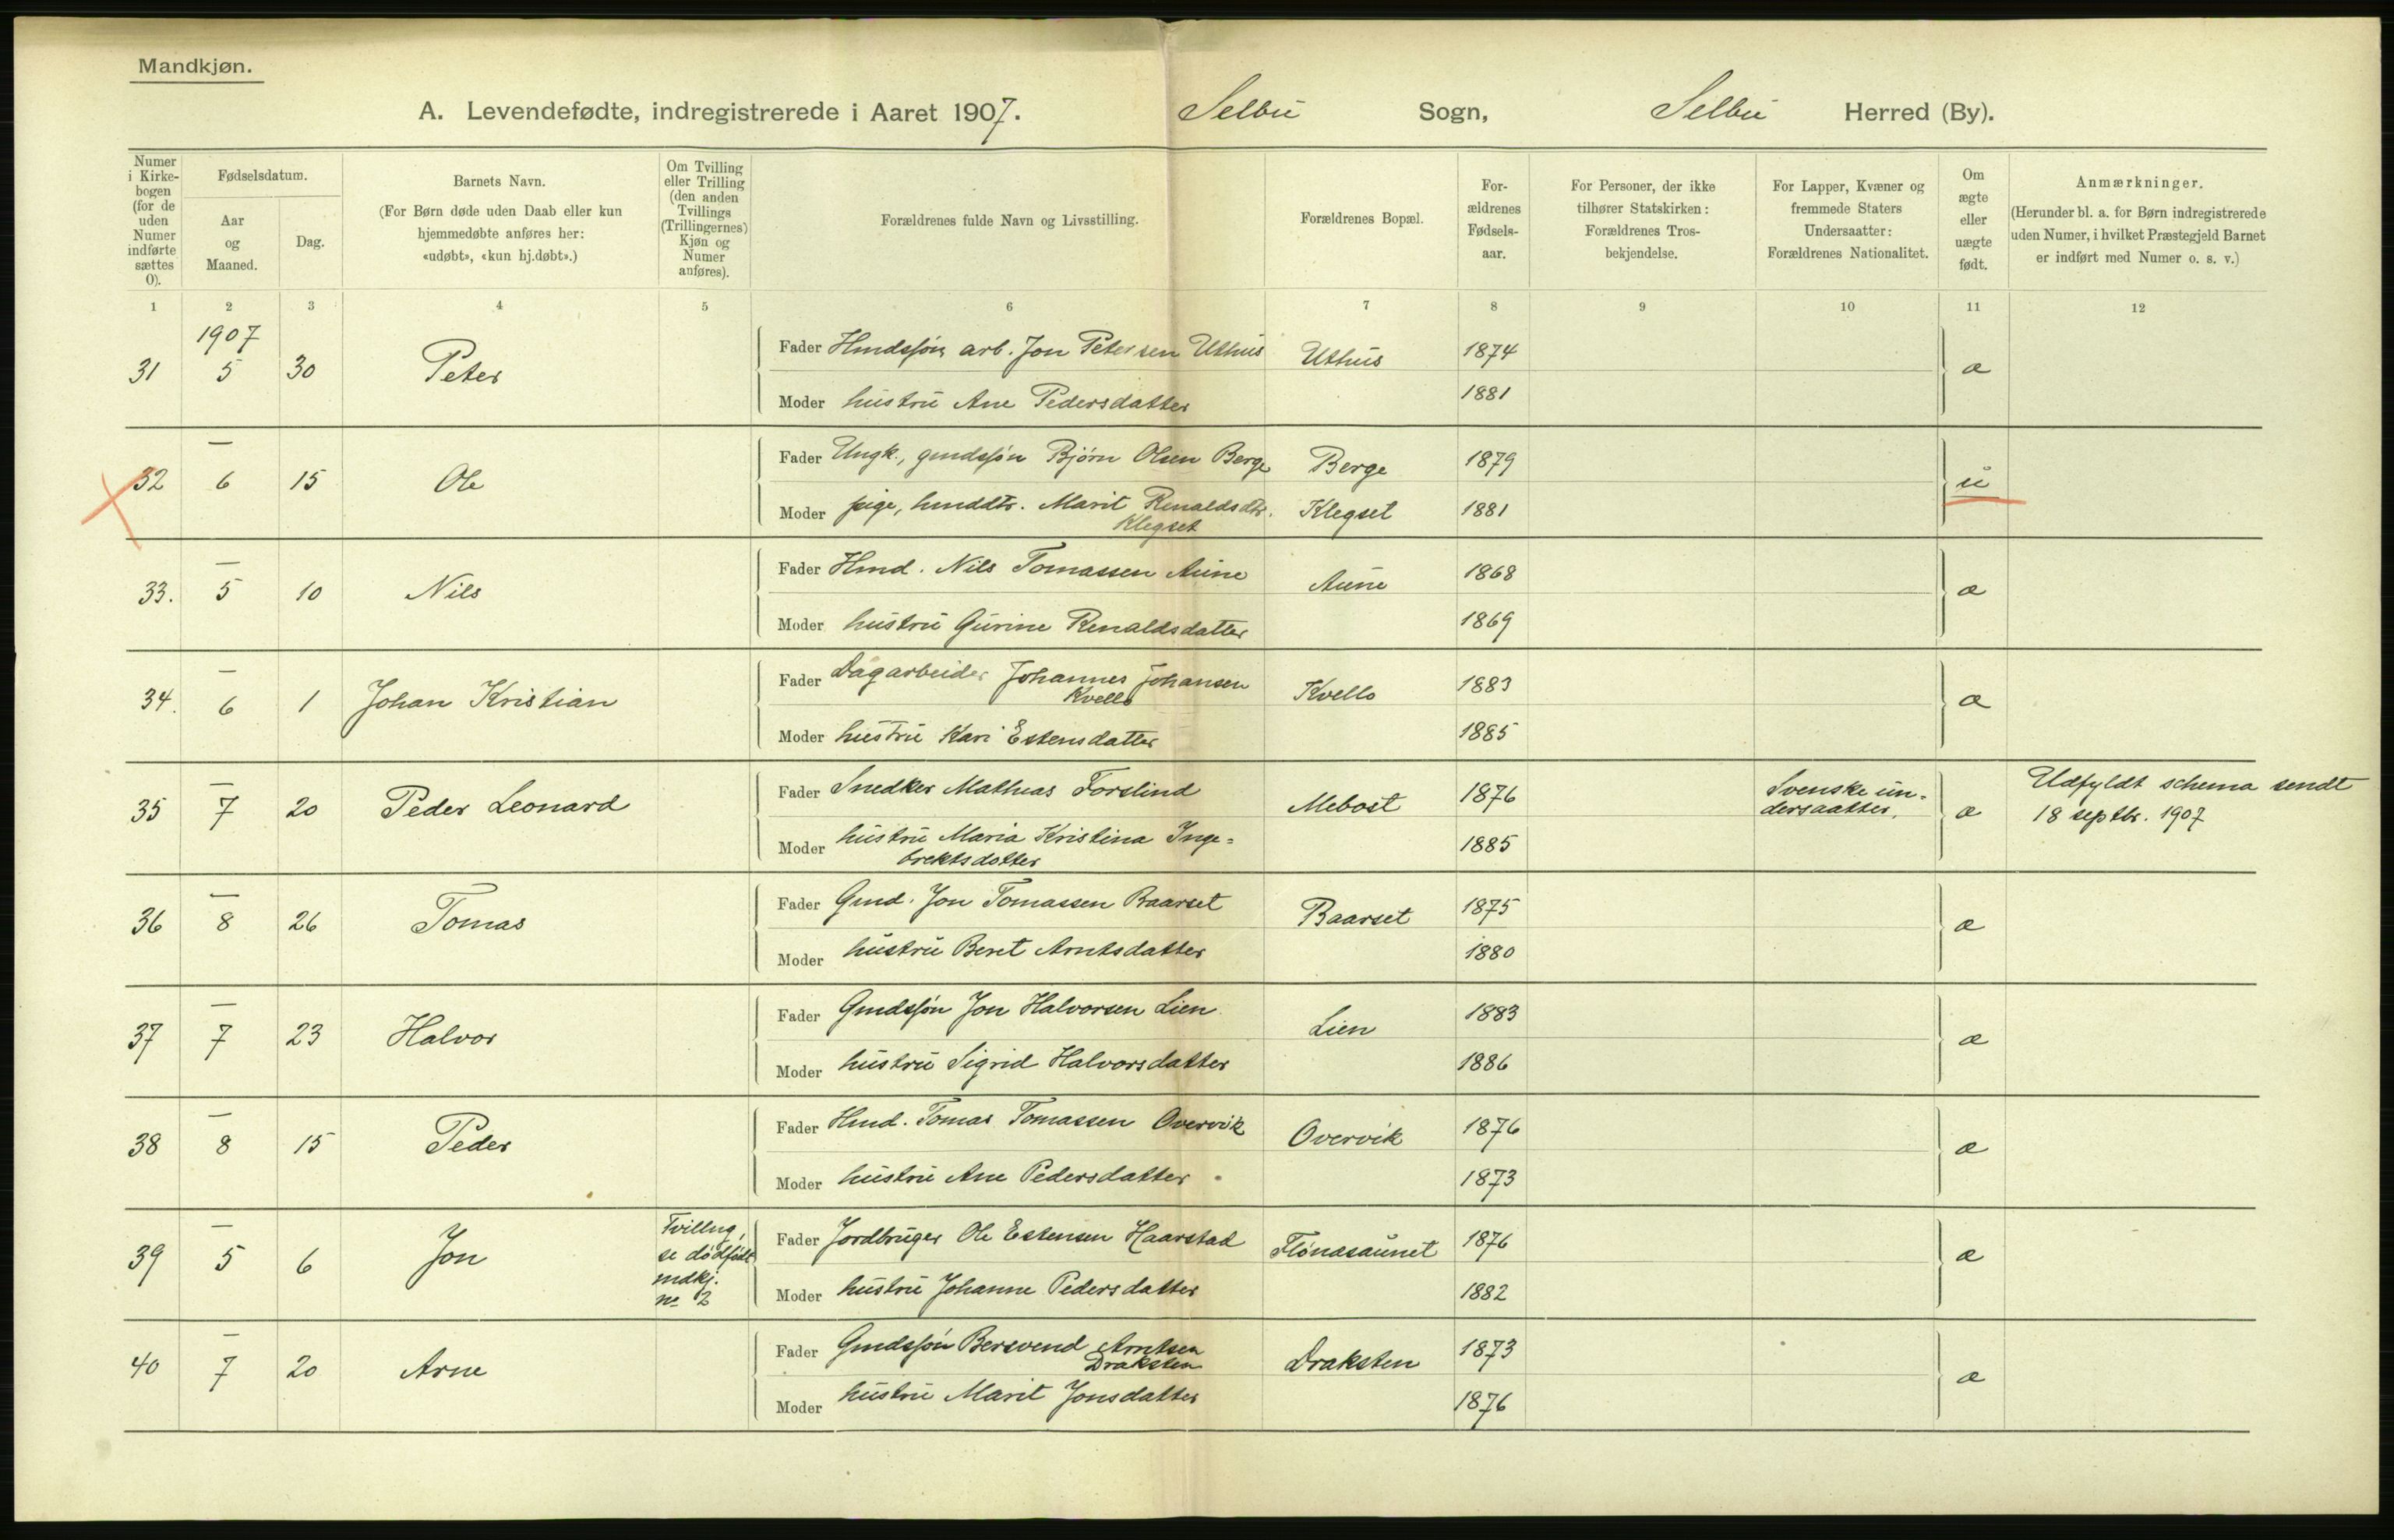 Mandkjøn.
A. Levendefødte, indregistrerede i Aaret 1907. Selbu Sogn, Selbu Herred (By).
Numer i Kirke-bogen (for de uden Numer indførte sættes 0).
Fødselsdatum.
Aar og Maaned.
Dag.
Barnets Navn.
(For Børn døde uden Daab eller kun
hjemmedøbte anføres her:
«udøbt», «kun hj.døbt».)
Om Tvilling
eller Trilling
(den anden
Tvillings
(Trillingernes)
Kjøn og
Numer
anføres).
Forældrenes fulde Navn og Livsstilling.
Forældrenes Bopæl.
For-
ældrenes
Fødsels-
aar.
For Personer, der ikke
tilhører Statskirken:
Forældrenes Tros-
bekjendelse.
For Lapper, Kvæner og
fremmede Staters
Undersaatter:
Forældrenes Nationalitet.
Om
ægte
eller
uægte
født.
Anmærkninger.
(Herunder bl. a. for Børn indregistrerede
uden Numer, i hvilket Præstegjeld Barnet
er indført med Numer o. s. v.)
1 2 3 4 5 6 7 8 9 10 11 12
1907
31 5 30 Peter
Fader Hmdssøn, arb. Jon Petersen Uthus Uthus 1874 æ
Moder hustru Ane Pedersdatter 1881
—
32 6 15 Ole
Fader Ungk., gmdssøn Bjørn Olsen Berge Berge 1879 u
Moder pige, hmddtr. Marit Renaldsdtr. Klegset 1881
Klegset
—
33. 5 10 Nils
Fader Hmd. Nils Tomassen Aune Aune 1868 æ
Moder hustru Gurine Renaldsdatter 1869
—
34. 6 1 Johan Kristian
Fader Dagarbeider Johannes Johansen Kvello 1883 æ
Kvello
Moder hustru Kari Estensdatter 1885
—
35 7 20 Peder Leonard
Fader Snedker Mathias Forslind Mebost 1876 Svenske un-
dersaatter. æ Udfyldt schema sendt
18 septbr. 1907
Moder hustru Maria Kristina Inge= 1885
brektsdotter
—
36 8 26 Tomas
Fader Gmd. Jon Tomassen Baarset Baarset 1875 æ
Moder hustru Beret Arntsdatter 1880
—
37 7 23 Halvor
Fader Gmdssøn Jon Halvorsen Lien Lien 1883 æ
Moder hustru Sigrid Halvorsdatter 1886
—
38 8 15 Peder
Fader Hmd. Tomas Tomassen Overvik Overvik 1876 æ
Moder hustru Ane Pedersdatter 1873
—
39 5 6 Jon Tvilling,
se dødfødt
mdkj.
no 2
Fader Jordbruger Ole Estensen Haarstad Flønasaunet 1876 æ
Moder hustru Johanne Pedersdatter 1882
—
40 7 20 Arne
Fader Gmdssøn Bersvend Arntsen Draksten 1873 æ
Draksten
Moder hustru Marit Jonsdatter 1876